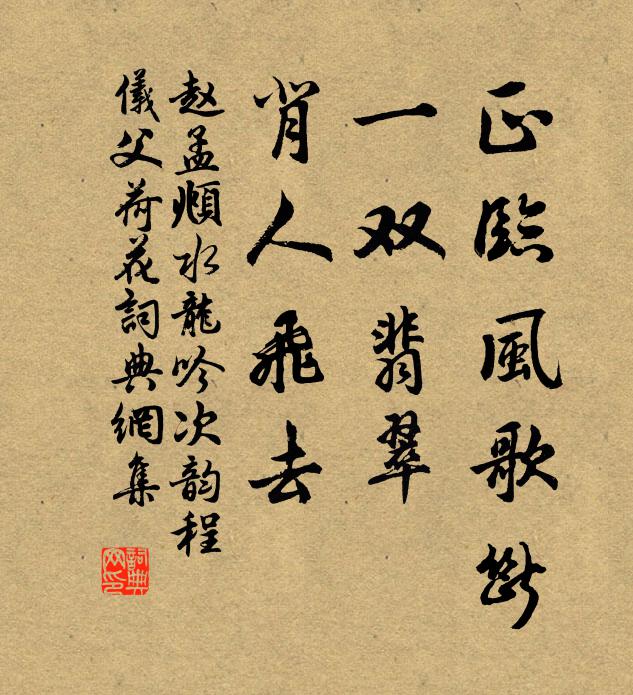 正臨風歌斷
一双翡翠
背人飛去
赵孟頫水龍吟次韵程
儀父荷花詞典網集
詞典網印